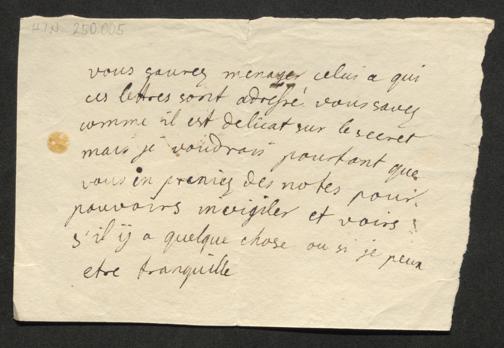 H.I.N. 250.005
vous saurez menager celui a qui
ces lettres sont adressé vous savez
comme il est delicat sur le secret
mais je voudrois pourtant que
vous en preniez des notes pour
pouvoirs invigiler et voirs
s'il ij a quelque chose ou si je peux
etre tranquille